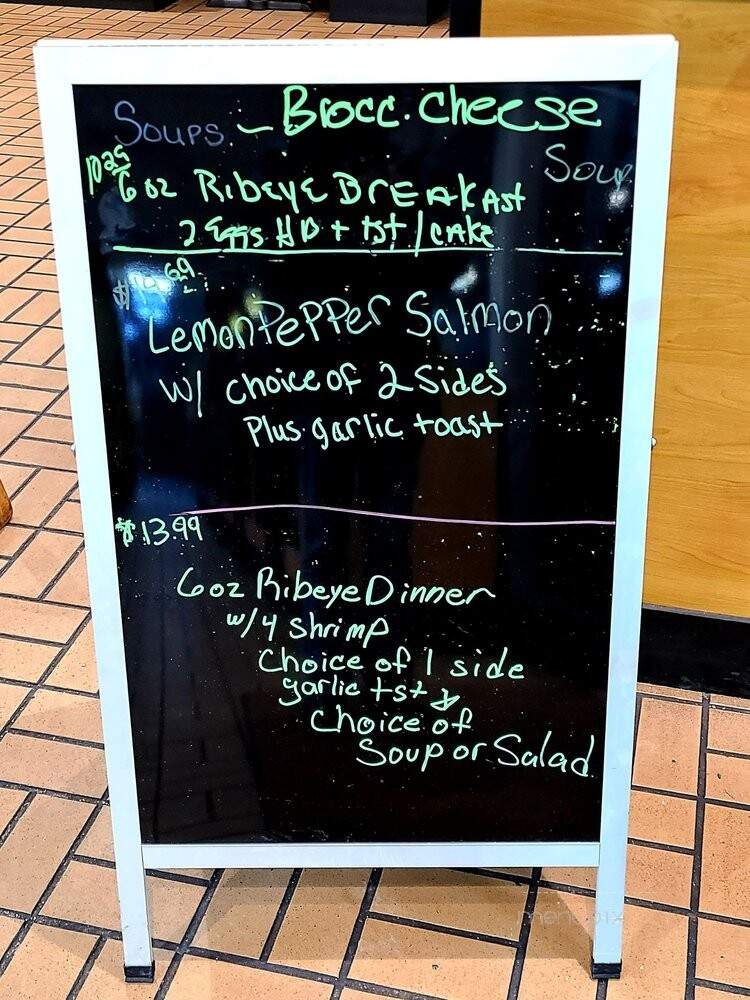 Soups - Brocc. Cheese
Soup
10 25
6 oz Ribeye Breakast
2 Eggs HB + tst / cake
69
Lemon Pepper Salmon
w/ choice of 2 Sides
Plus garlic toast
$13.99
6oz Ribeye Dinner
w/4 shrimp
Choice of 1 side
garlic tst &
choice of
Soup or Salad
menupix